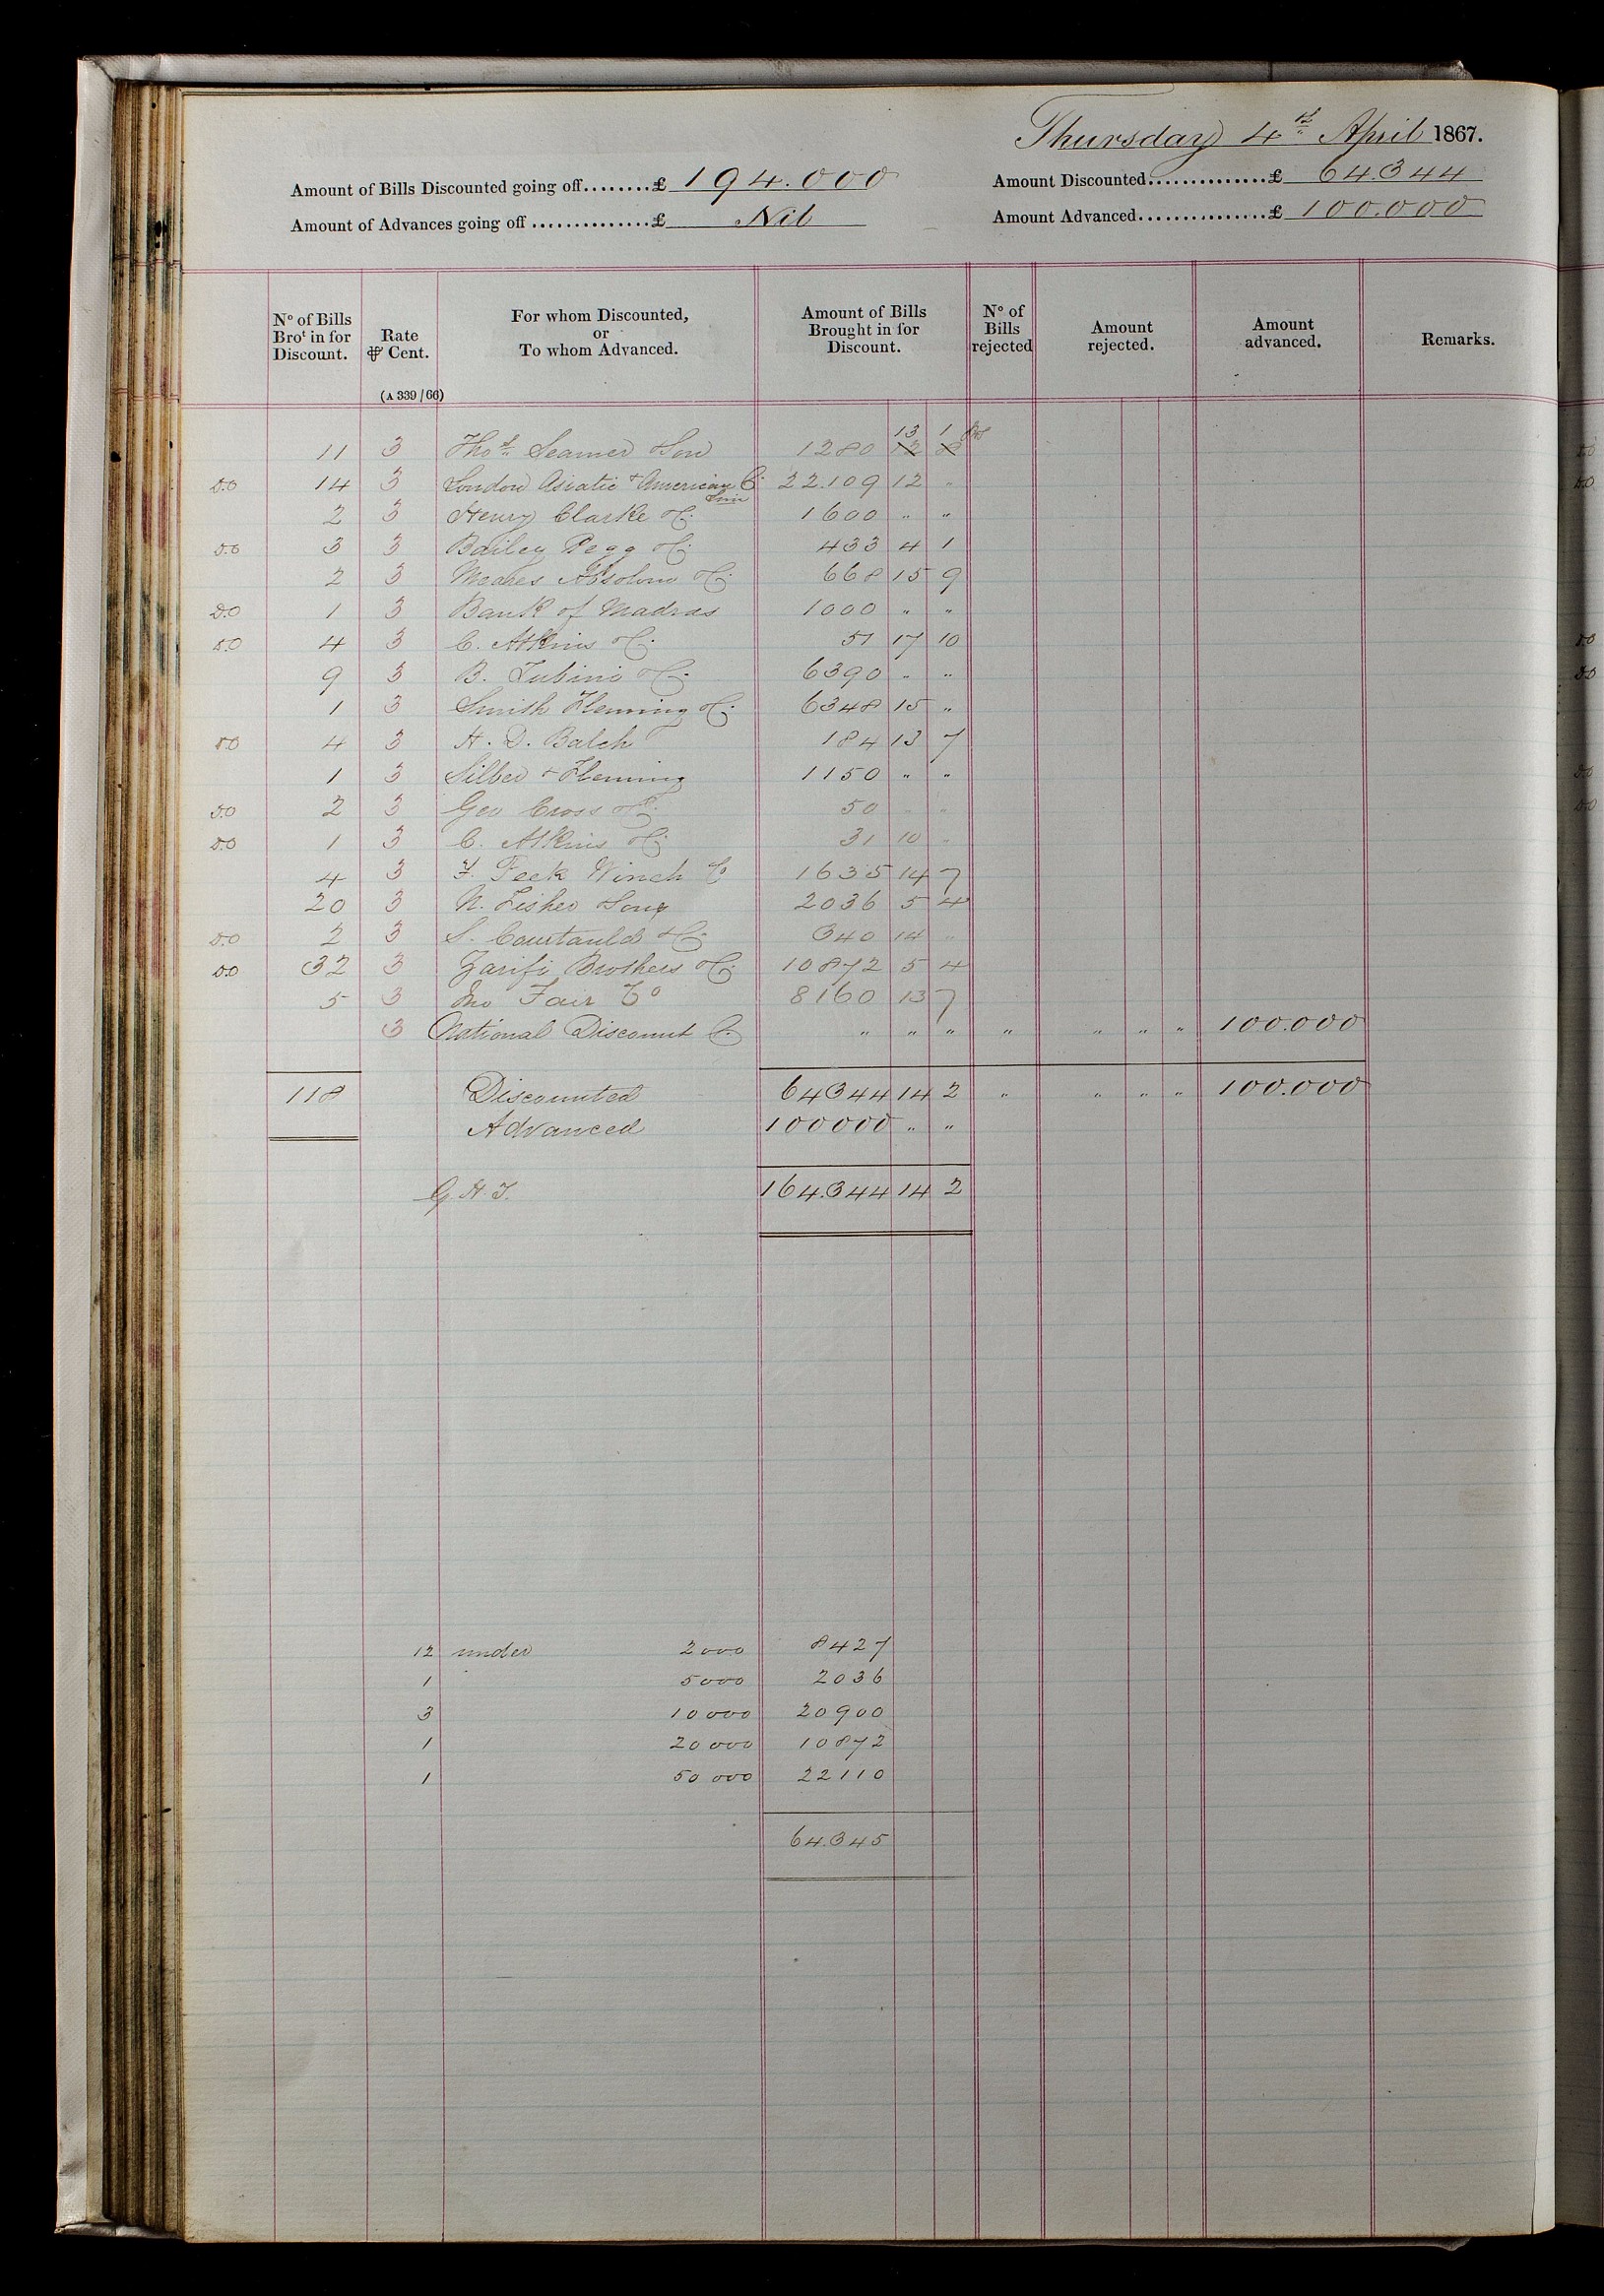 Thursday 4th April 1867.
Amount of Bills Discounted going off........£ 194.000
Amount Discounted..............£ 64.344
Amount of Advances going off ..............£ Nil
Amount Advanced...............£ 100.000
No of Bills Brot in for Discount. Rate ⅌ Cent. (A 339/66) For whom Discounted, or To whom Advanced. Amount of Bills Brought in for Discount. No of Bills rejected Amount rejected. Amount advanced. Remarks.
13 1
11 3 Thos Seamer & Son 1280 12 8
Do 14 3 London Asiatic & American Co 22.109 12 "
2 3 Henry Clarke & Co 1600 " "
Do 3 3 Bailey Pegg & Co 433 4 1
2 3 Meares Absolom & Co 668 15 9
Do 1 3 Bank of Madras 1000 " "
Do 4 3 C. Atkins & Co 51 17 10
9 3 B. Tubini & Co 6390 " "
1 3 Smith Fleming & Co 6348 15 "
Do 4 3 H. D. Balch 184 13 7
1 3 Silber & Fleming 1150 " "
Do 2 3 Geo Cross & Co 50 " "
Do 1 3 C. Atkins & Co 31 10 "
4 3 F. Peek Winch Co 1635 14 7
20 3 N. Fisher & Sons 2036 5 4
Do 2 3 S. Courtauld & Co 340 14 "
Do 32 3 Zarifi Brothers & Co 10872 5 4
5 3 Jno Fair Co 8160 13 7
3 National Discount Co " " " " " " " 100.000
118 Discounted 64344 14 2 " " " " 100.000
Advanced 100000 " "
G. H. T. 164.344 14 2
12 under 2000 8427
1 5000 2036
3 10000 20900
1 20000 10872
1 50000 22110
64.345